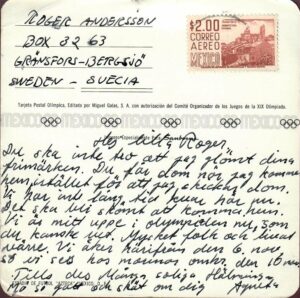 ROGER ANDERSSON
BOX 3263
GRÄNSFORS-BERGSJÖ
SWEDEN - SUECIA
$2.00
CORREO
AEREO
MEXICO
Tarjeta Postal Olímpica, Editada por Miguel Galas, S. A. con autorización del Comité Organizador de los Juegos de la XIX Olimpiada.
Hej lilla Roger.
Du ska inte tro att jag glömt dina
frimärken. Du får dom när jag kommer
hem, istället för att jag skickar dom.
Vi har inte lång tid kvar här nu.
Och ska bli skönt att komma hem.
Vi är mitt uppe i olympiaden nu, som
du kanske vet. Mycket folk och huvat
värre. Vi åker härifrån den 15 nov.
så vi ses hos mormor omkr. den 18 nov.
Tills dess Många soliga Hälsningar
så gott och sköt om dig Agneta
ESTADIO DE FUTBOL "AZTECA" MEXICO, D.